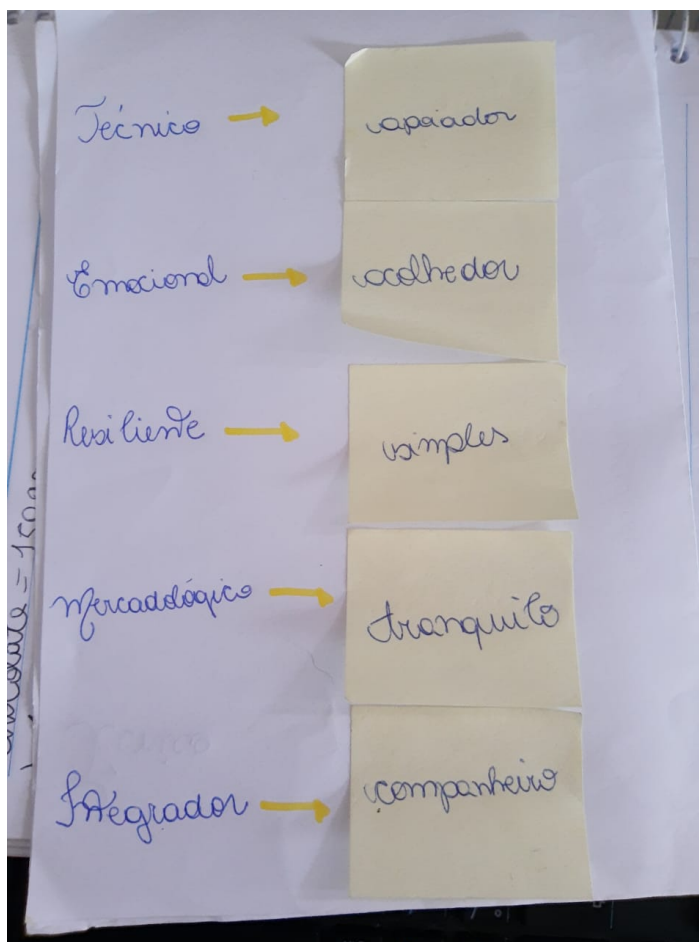 Técnico → apoiador
Emocional → acolhedor
Resiliente → simples
Mercadológico → tranquilo
Integrador → companheiro